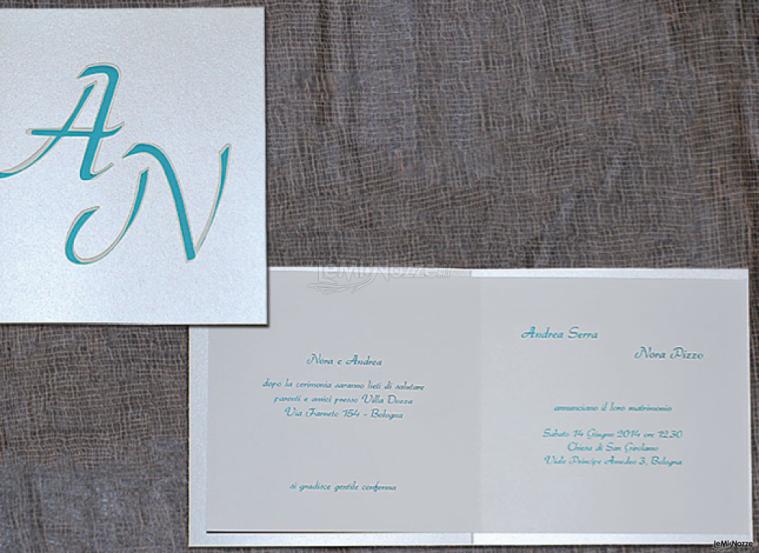 A
N
leMieNozze.it
Nora e Andrea
dopo la cerimonia saranno lieti di salutare
parenti e amici presso Villa Dozza
Via Farneto 154 - Bologna
si gradisce gentile conferma
Andrea Serra
Nora Pizzo
annunciano il loro matrimonio
Sabato 14 Giugno 2014 ore 12,30
Chiesa di San Girolamo
Viale Principe Amedeo 3, Bologna
leMieNozze